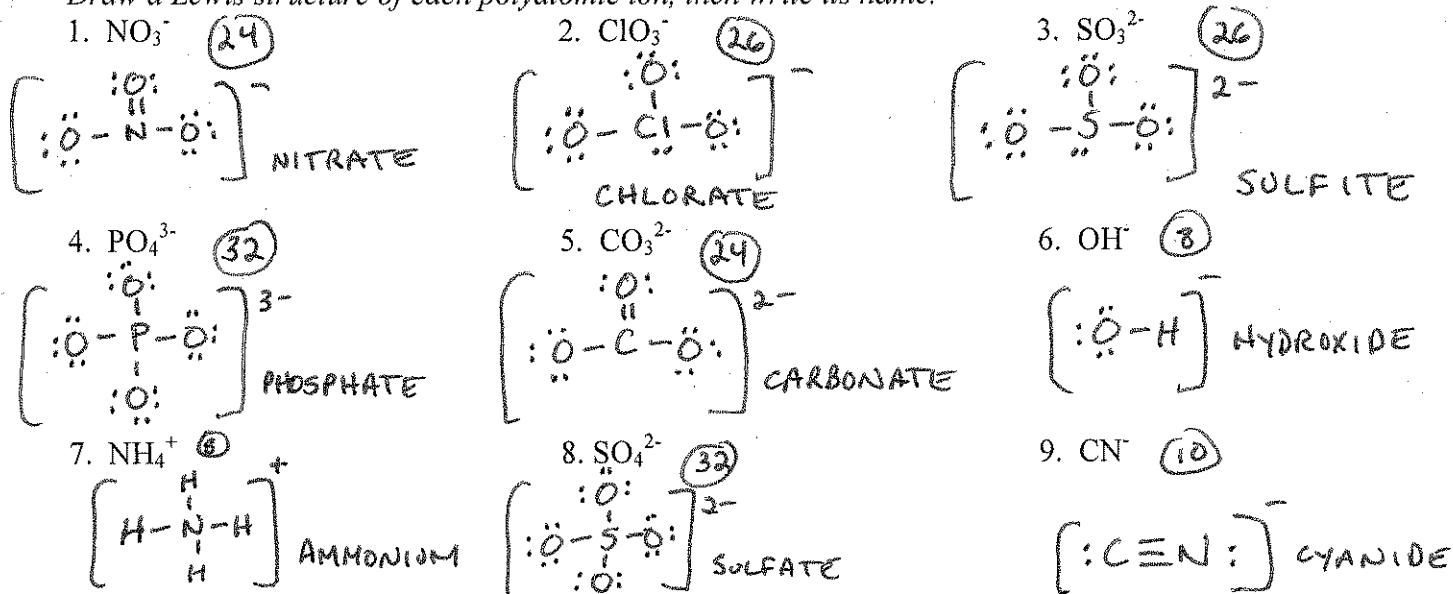 Draw a Lewis structure of each polyatomic ion, then write its name.
1. NO₃⁻ 24
:O:
||
:Ö-N-Ö: ⁻
NITRATE
2. ClO₃⁻ 26
:Ö:
|
:Ö-Cl-Ö: ⁻
CHLORATE
3. SO₃²⁻ 26
:Ö:
|
:Ö-S-Ö: 2-
SULFITE
4. PO₄³⁻ 32
:Ö:
|
:Ö-P-Ö: 3-
|
:O:
PHOSPHATE
5. CO₃²⁻ 24
:O:
||
:Ö-C-Ö: 2-
CARBONATE
6. OH⁻ 8
[:Ö-H]⁻ HYDROXIDE
7. NH₄⁺ 8
H
|
[H-N-H]⁺
|
H
AMMONIUM
8. SO₄²⁻ 32
:Ö:
|
:Ö-S-Ö: 2-
|
:O:
SULFATE
9. CN⁻ 10
[:C≡N:]⁻ CYANIDE